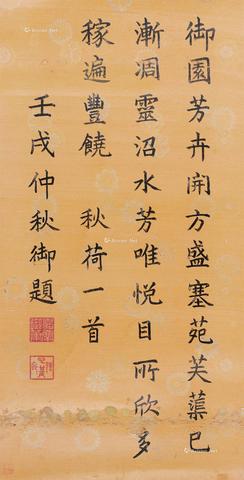 御園芳卉開方盛塞苑芙蕖已
漸凋靈沼水芳唯悅目所欣多
稼遍豐饒 秋荷一首
壬戌仲秋御題